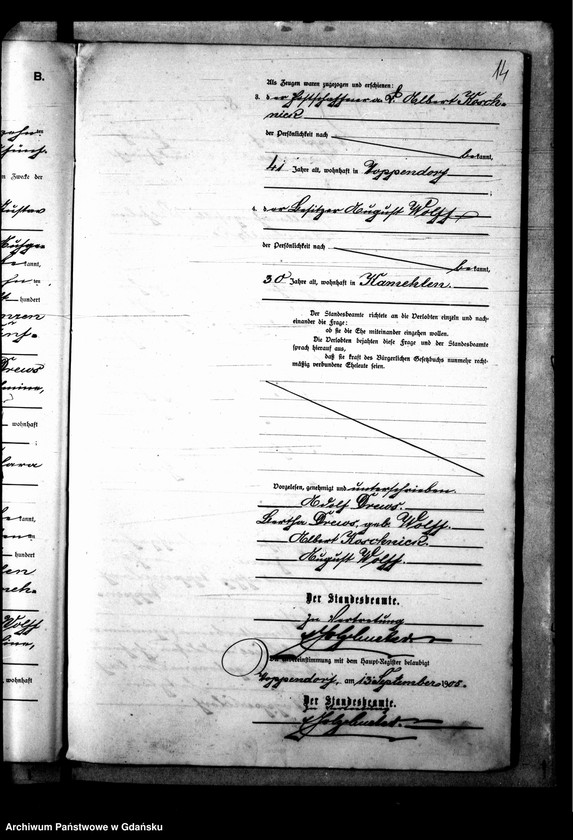 B.
14
Als Zeugen waren zugezogen und erschienen:
3. der Postschaffner a. D. Albert Korsch-
nick
der Persönlichkeit nach
bekannt,
41 Jahre alt, wohnhaft in Zoppendorf
;
4. der Besitzer August Wolff
der Persönlichkeit nach
bekannt,
30 Jahre alt, wohnhaft in Kamehlen.
Der Standesbeamte richtete an die Verlobten einzeln und nach-
einander die Frage:
ob sie die Ehe miteinander eingehen wollen.
Die Verlobten bejahten diese Frage und der Standesbeamte
sprach hierauf aus,
daß sie kraft des Bürgerlichen Gesetzbuchs nunmehr recht-
mäßig verbundene Eheleute seien.
Vorgelesen, genehmigt und unterschrieben
Adolf Drews.
Bertha Drews, geb. Wolff.
Albert Korschnick.
August Wolff.
Der Standesbeamte.
In Vertretung
Die Übereinstimmung mit dem Haupt-Register beglaubigt
Zoppendorf, am 13. September 1905.
Der Standesbeamte.
In Vertretung
m Zwecke der
kannt,
hundert
Drews
wohnhaft
;
kannt,
hundert
Wolff
, wohnhaft
Archiwum Państwowe w Gdańsku